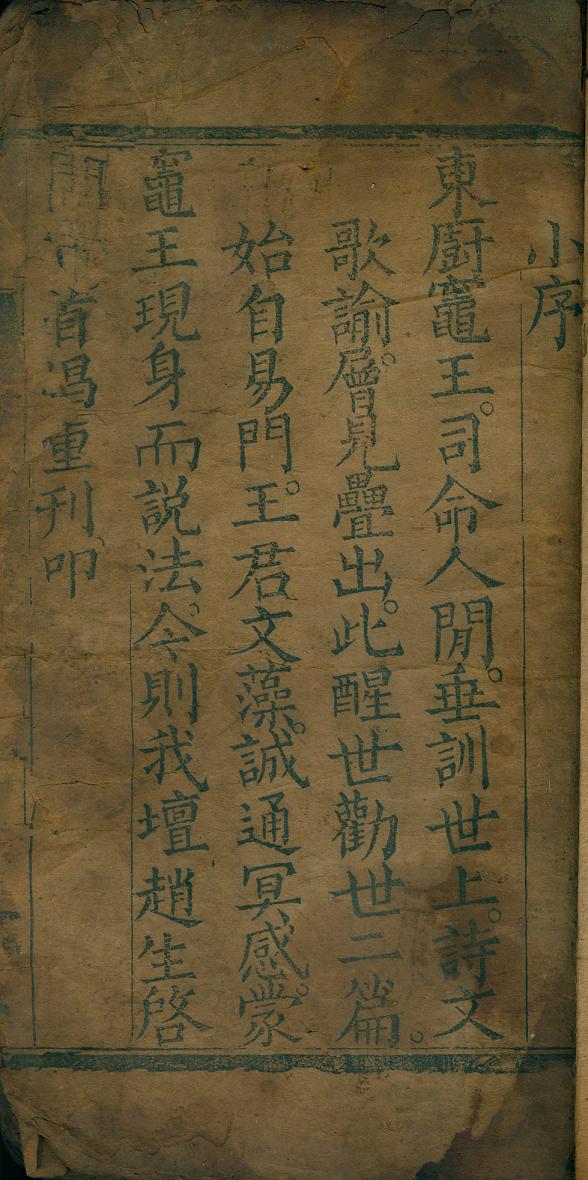 小序
東廚竈王。司命人間。垂訓世上。詩文
歌諭。層見疊出。此醒世勸世二篇。
始自易門。王君文藻。誠通冥感。蒙
竈王現身而說法。今則我壇趙生啓
首焉重刊印